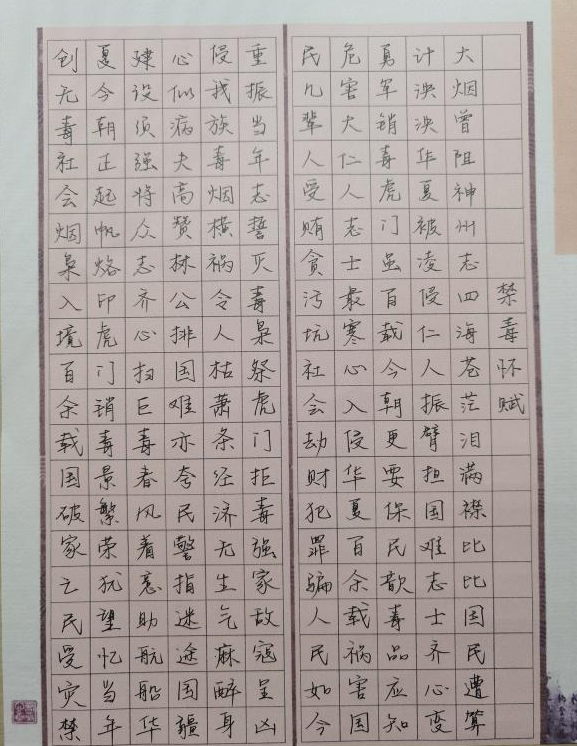 禁毒怀赋
大烟曾阻神州志四海苍茫泪满襟比比国民遭算
计泱泱华夏被凌侵仁人振臂担国难志士齐心变
勇军销毒虎门虽百载今朝更要保民歆毒品应知
危害大仁人志士最寒心入侵华夏百余载祸害国
民几辈人受贿贪污坑社会劫财犯罪骗人民如今
重振当年志誓灭毒枭祭虎门拒毒强家敌寇呈凶
侵我族毒烟横祸令人枯萧条经济无生气麻醉身
心似病夫高赞林公排国难亦夸民警指迷途国疆
建设须强将众志齐心扫巨毒春风着意助航船华
夏今朝正起帆烙印虎门销毒景繁荣犹望忆当年
创无毒社会烟枭入境百余载国破家亡民受灾禁